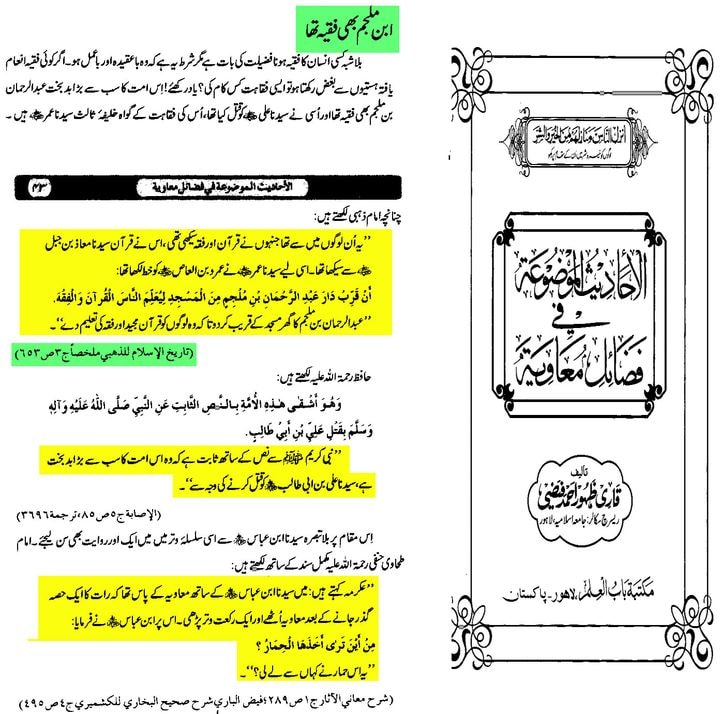 ابن ملجم بھی فقیہ تھا
بلاشبہ کسی انسان کا فقیہ ہونا فضیلت کی بات ہے مگر شرط یہ ہے کہ وہ باعقیدہ اور باعمل ہو۔ اگر کوئی فقیہ انعام
یافتہ ہستیوں سے بغض رکھتا ہو تو ایسی فقاہت کس کام کی؟ یاد رکھئے! اِس امت کا سب سے بڑا بد بخت عبدالرحمان
بن ملجم بھی فقیہ تھا اور اُسی نے سیدنا علی ﷜ کو قتل کیا تھا، اُس کی فقاہت کے گواہ خلیفۂ ثالث سیدنا عمر ﷜ ہیں۔
الأحادیث الموضوعة في فضائل معاوية
٤٣
چنانچہ امام ذہبی لکھتے ہیں:
’’یہ اُن لوگوں میں سے تھا جنہوں نے قرآن اور فقہ سیکھی تھی، اس نے قرآن سیدنا معاذ بن جبل
﷜ سے سیکھا تھا۔ اسی لیے سیدنا عمر ﷜ نے عمرو بن العاص ﷜ کو خط لکھا تھا:
أَنْ قَرِّبْ دَارَ عَبْدِ الرَّحْمَانِ بْنِ مُلْجِمٍ مِنَ الْمَسْجِدِ لِيُعَلِّمَ النَّاسَ الْقُرْآنَ وَالْفِقْهَ.
’’عبدالرحمان بن ملجم کا گھر مسجد کے قریب کر دو تا کہ وہ لوگوں کو قرآن مجید اور فقہ کی تعلیم دے‘‘۔
(تاريخ الإسلام للذهبي ملخصاً ج٣ ص٦٥٣)
حافظ رحمۃ اللہ علیہ لکھتے ہیں:
وَهُوَ أَشْقَى هٰذِهِ الْأُمَّةِ بِالنَّصِ الثَّابِتِ عَنِ النَّبِيِّ صَلَّى اللهُ عَلَيْهِ وَآلِهِ
وَسَلَّمَ بِقَتْلِ عَلِيِّ بْنِ أَبِيْ طَالِبٍ.
’’نبی کریم ﷺ سے نص کے ساتھ ثابت ہے کہ وہ اس امت کا سب سے بڑا بد بخت
ہے، سیدنا علی بن ابی طالب ﷜ کو قتل کرنے کی وجہ سے‘‘۔
(الإصابة ج٥ ص٨٥، ترجمة ٣٦٩٦)
اِس مقام پر بلا تبصرہ سیدنا ابن عباس ﷜ سے اسی سلسلۂ وتر میں ایک اور روایت بھی سن لیجئے۔ امام
طحاوی حنفی رحمۃ اللہ علیہ مکمل سند کے ساتھ لکھتے ہیں:
’’عکرمہ کہتے ہیں: میں سیدنا ابن عباس ﷜ کے ساتھ معاویہ کے پاس تھا کہ رات کا ایک حصہ
گذر جانے کے بعد معاویہ اُٹھے اور ایک رکعت وتر پڑھی۔ اس پر ابن عباس ﷜ نے فرمایا:
مِنْ أَيْنَ تَرَى أَخَذَهَا الْحِمَارُ ؟
’’یہ اس حمار نے کہاں سے لے لی؟‘‘
(شرح معاني الآثار ج١ ص٢٨٩؛ فيض الباري شرح صحيح البخاري للكشميري ج٤ ص٤٩٥)
أنزل الناس منازلهم من الخير والشر
الأحاديث الموضوعة
في
فضائل معاوية
تالیف
قاری ظہور احمد فیضی
ریسرچ سکالر: جامعہ اسلامیہ، لاہور
مکتبة باب العلم، لاہور۔ پاکستان